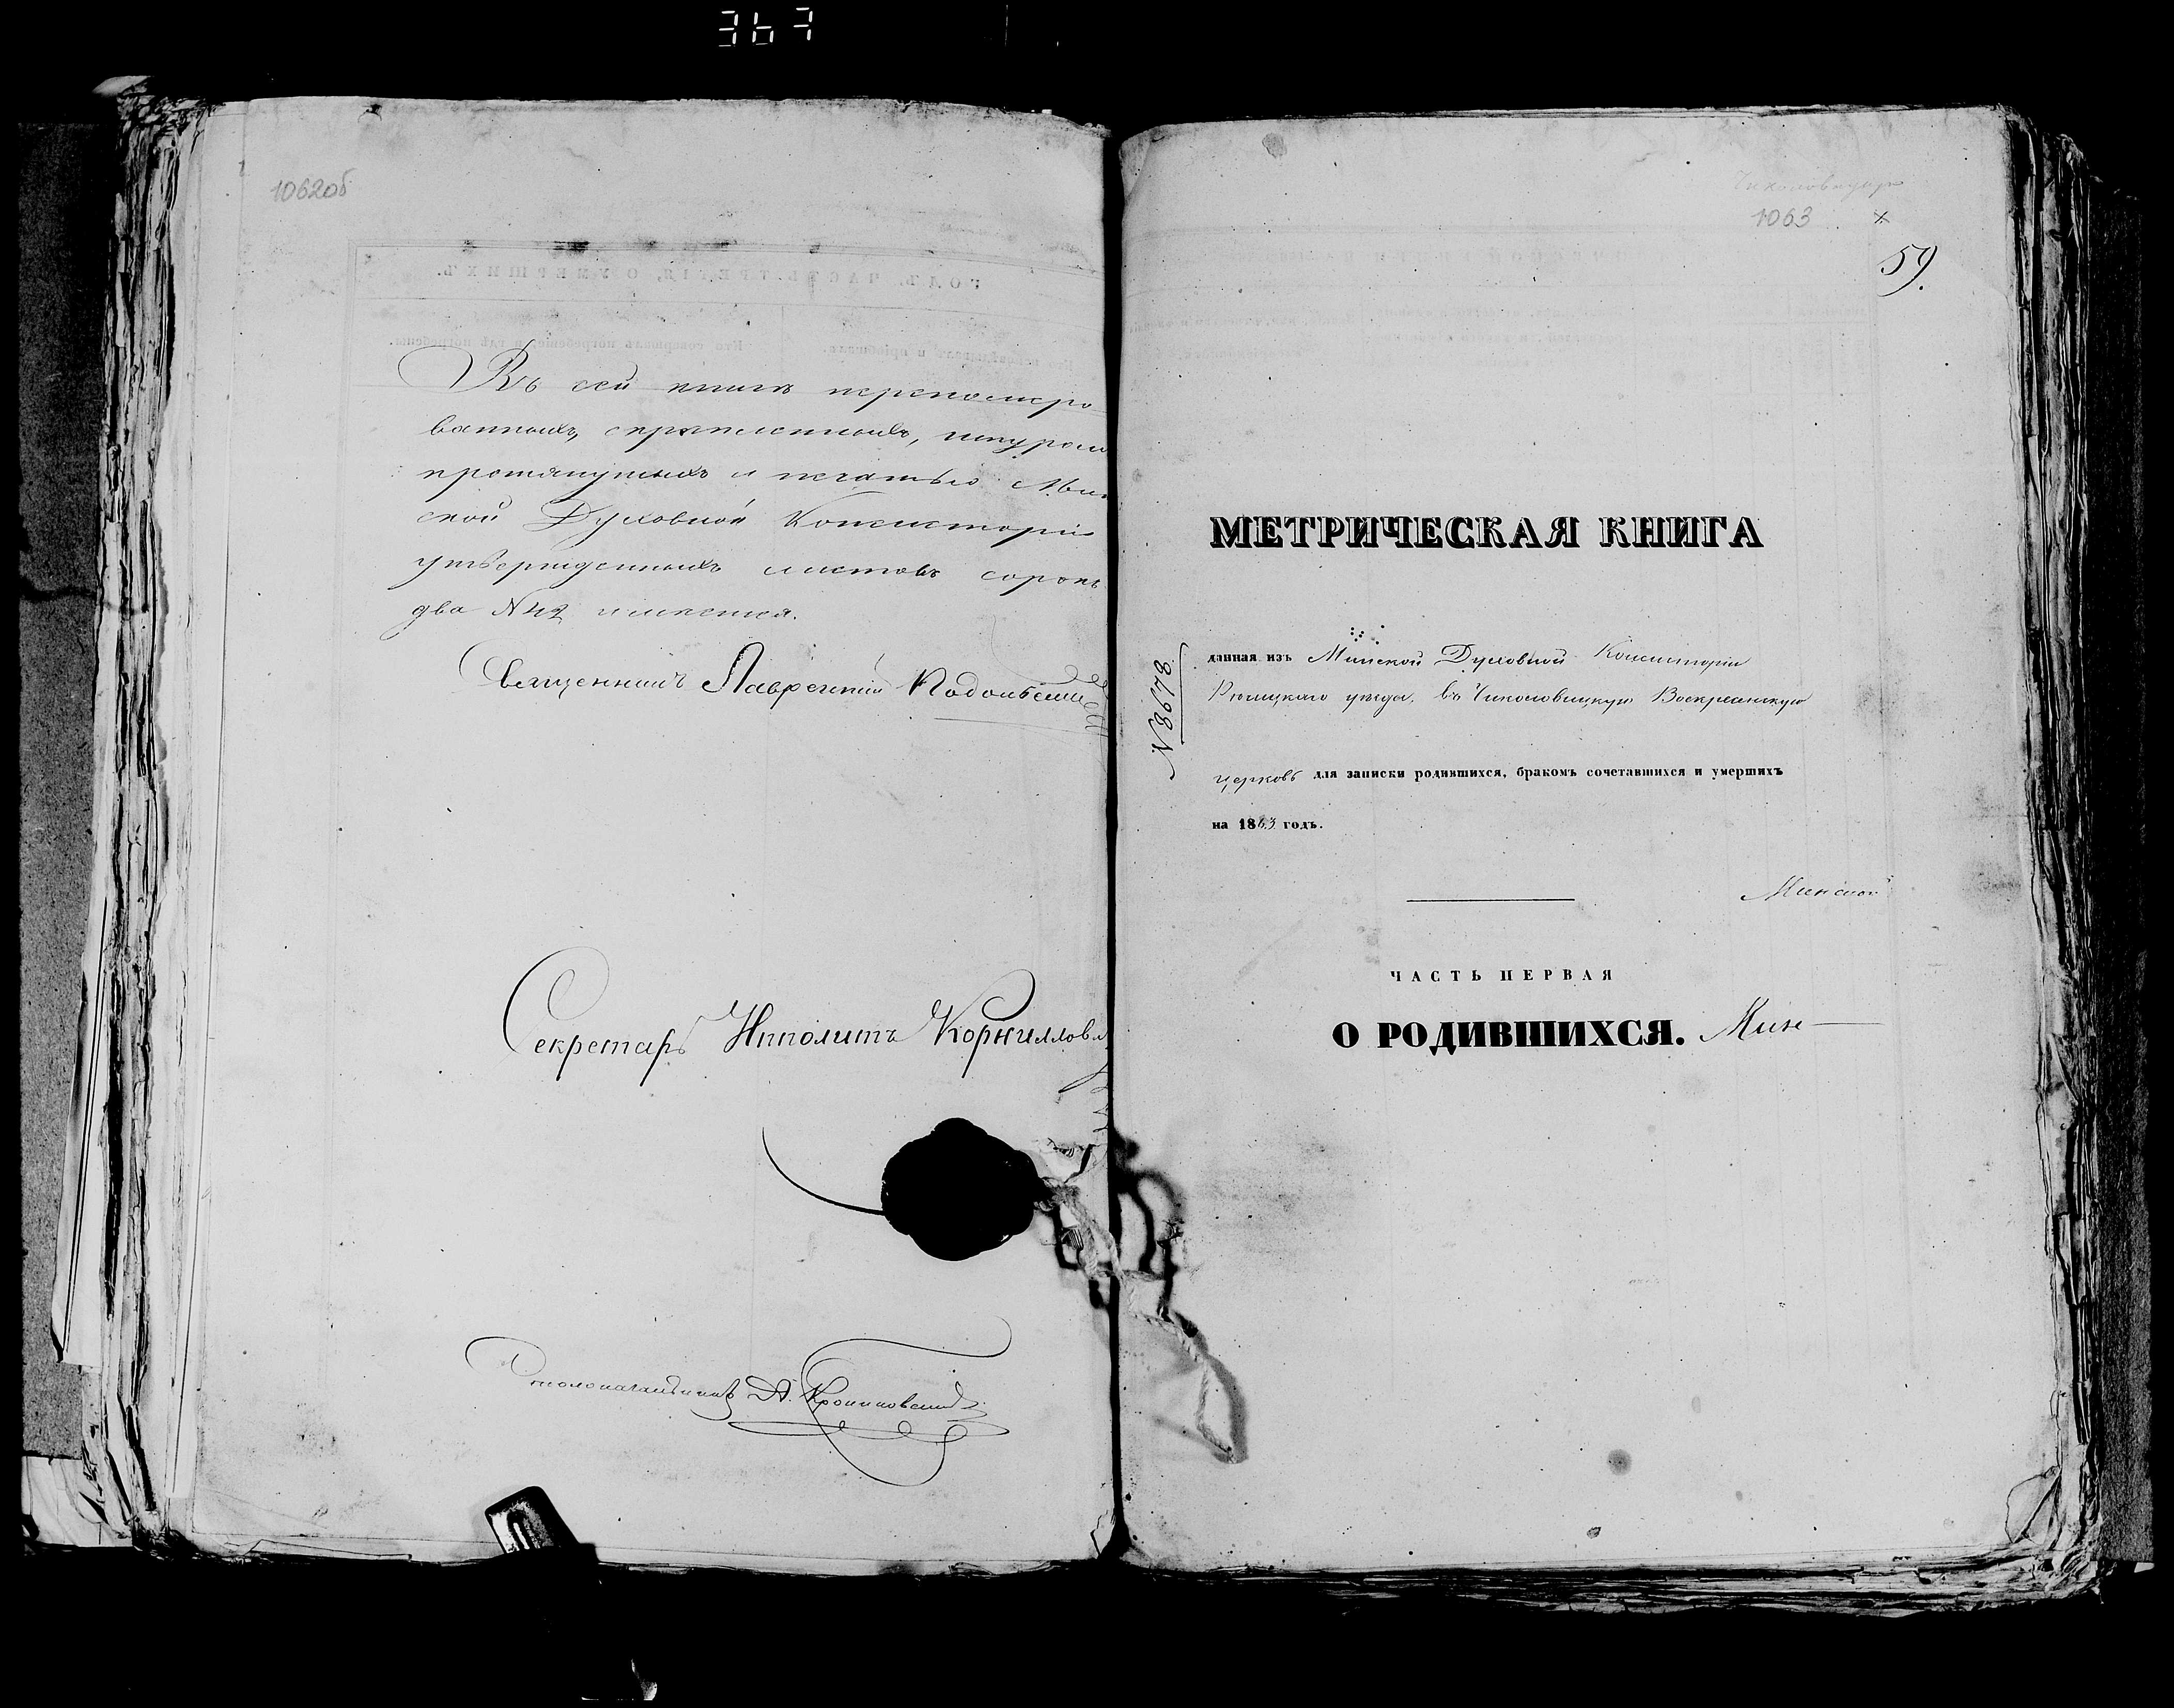 367
1062об
Въ сей книгѣ перенумеро-
ванныхъ, скрѣпленныхъ, шнуромъ
протянутыхъ и печатью Мин
ской Духовной Консисторіи
утвержденныхъ листовъ сорокъ
два №42 имѣется.
Священникъ Лаврентій
Секретарь Ипполитъ Корниллов
Столоначальникъ А.
1063 x
59.
МЕТРИЧЕСКАЯ КНИГА
№8678
данная изъ Минской Духовной Консисторіи
Рѣчицкаго уѣзда, въ Чиколовицкую Воскресенскую
церковь для записки родившихся, бракомъ сочетавшихся и умершихъ
на 1863 годъ.
Минской
ЧАСТЬ ПЕРВАЯ
О РОДИВШИХСЯ. Мин